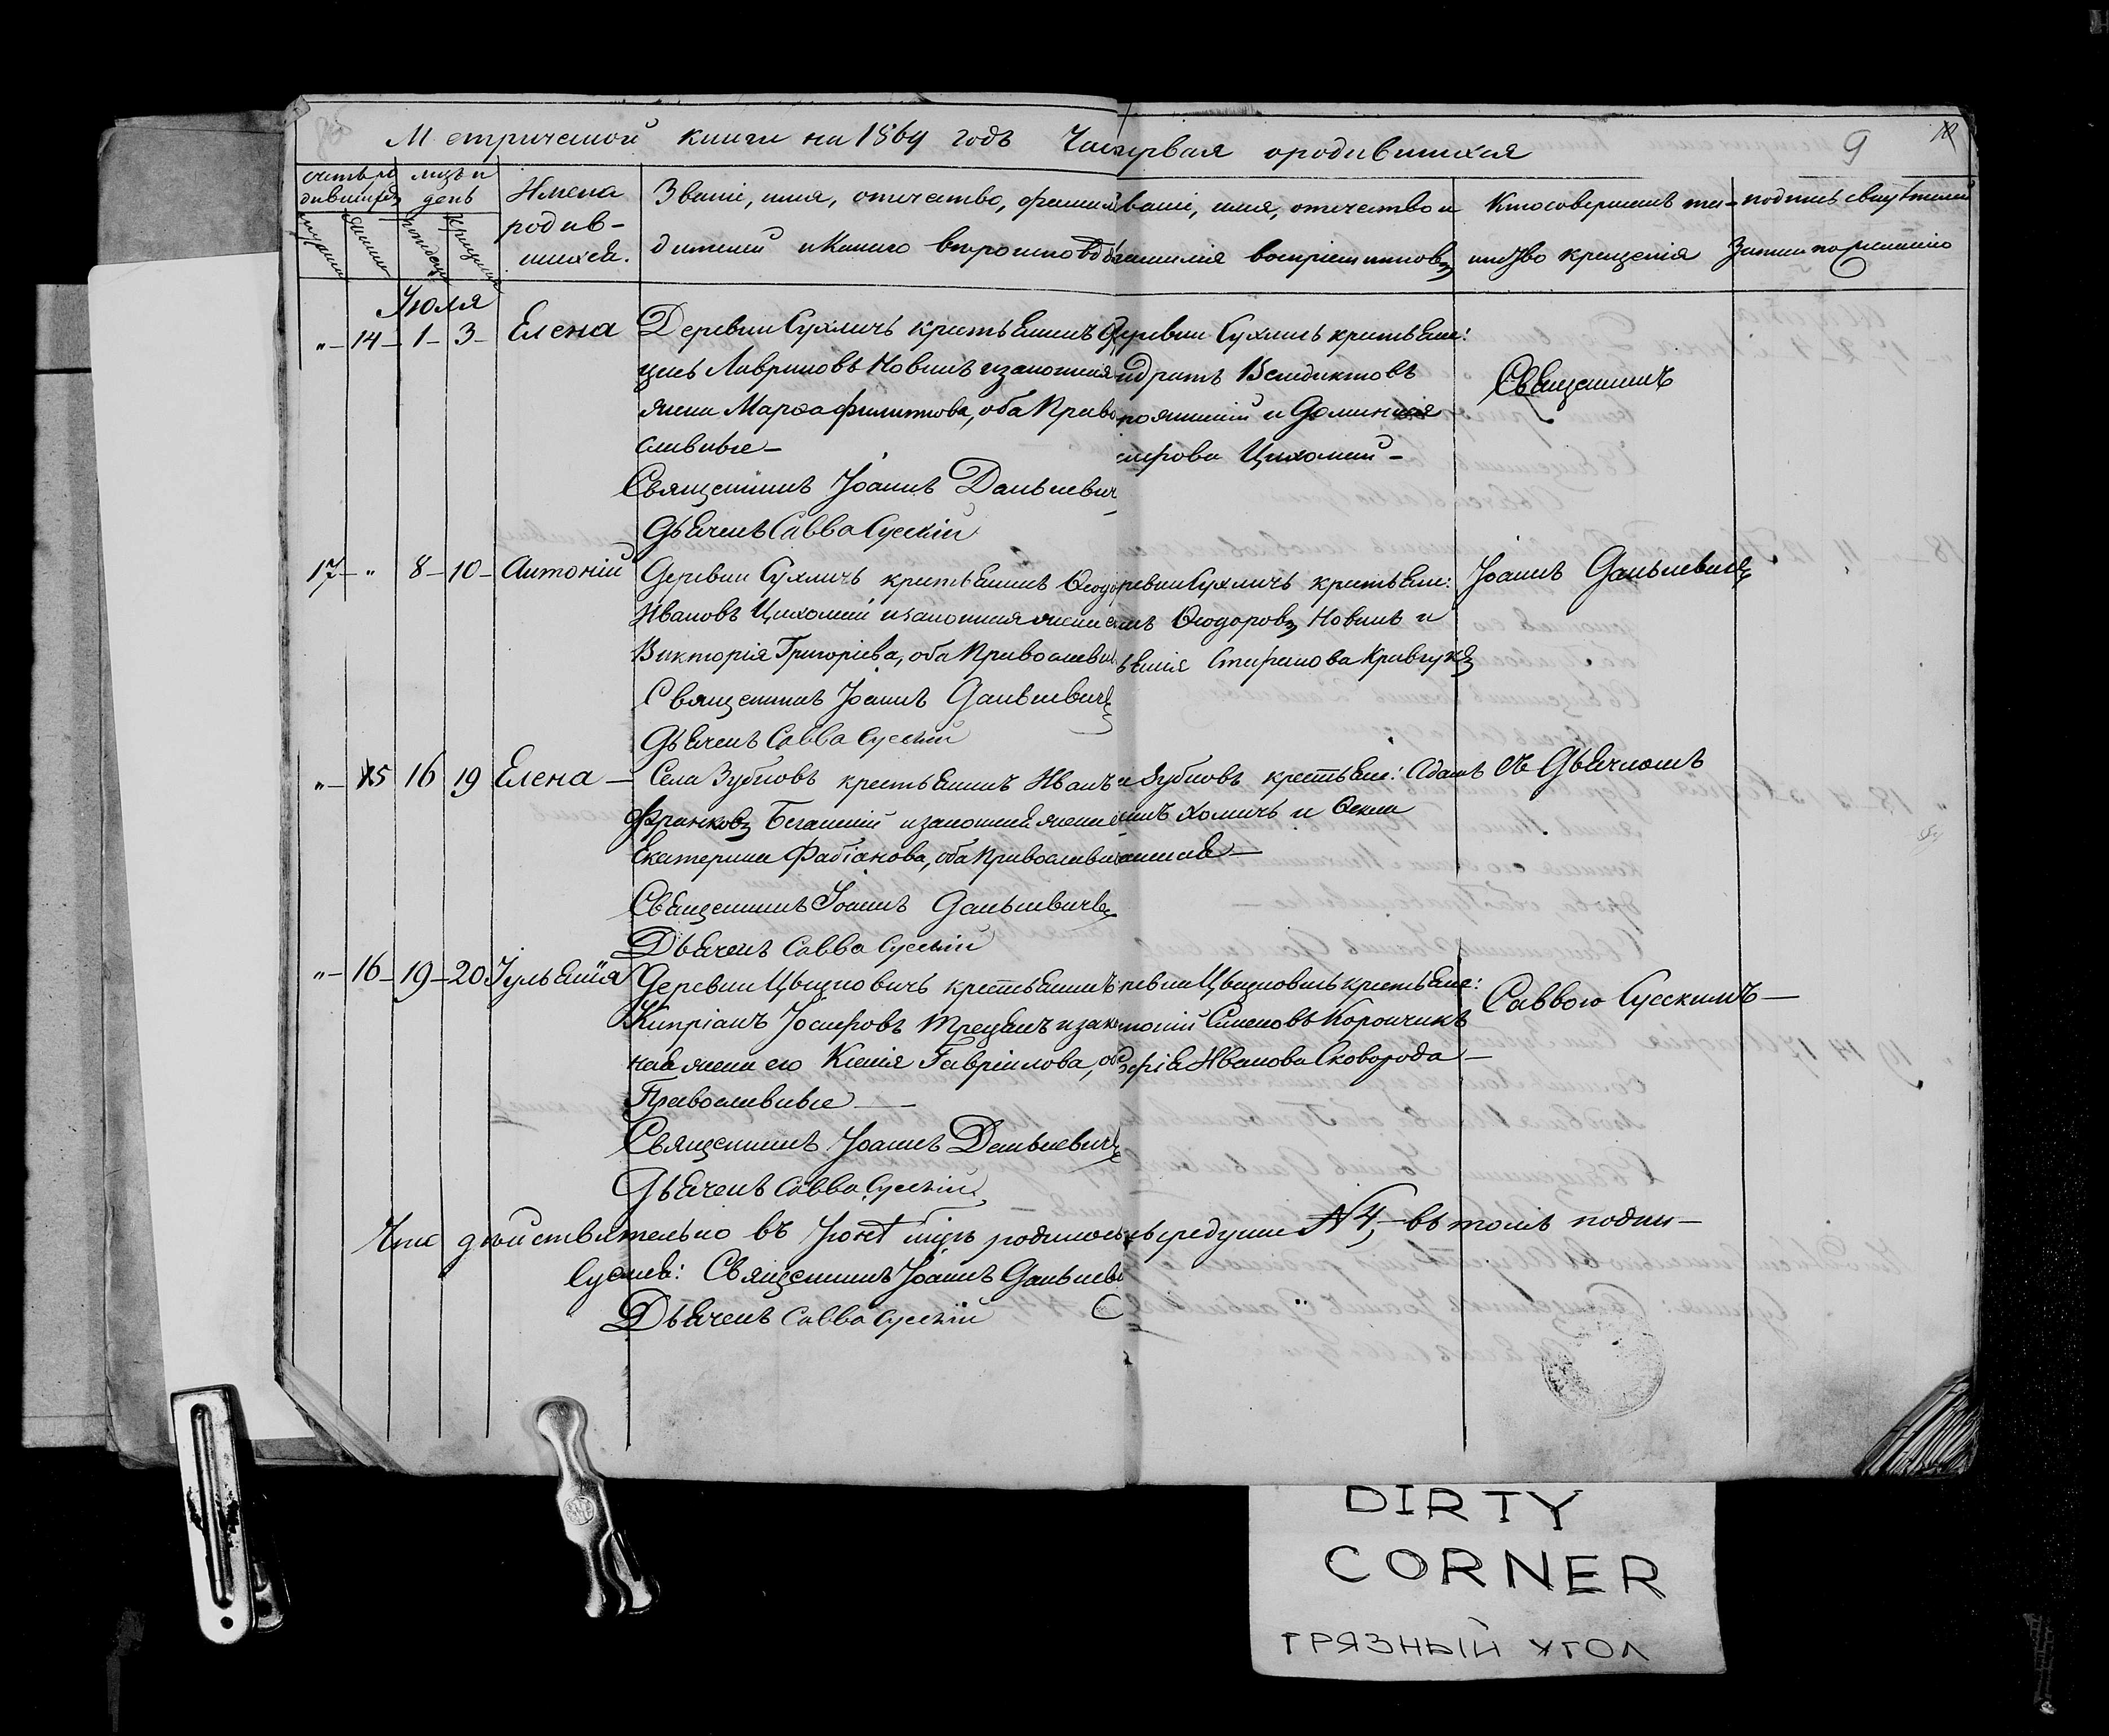 Метрической книги на 1869 годъ Часть первая о родившихся
9
счетъ ро
дившихся
мѣсяцъ и
день
Имена
родив-
шихся.
Званіе, имя, отчество, фамилія
дителей и какого вѣроисповѣд
Званіе, имя, отчество и
фамилія воспріемниковъ
Кто совершалъ та-
инство крещенія
подпись свидѣтелей
записи по желанію
Іюля
"-14-1-3- Елена
Деревни Сухличь крестьянинъ
Лавриновъ Новикъ и законная
жена Марѳа Филиппова, оба Право
славные-
Священникъ Іоаннъ Данькевич
Дьячекъ Савва Сусскій
деревни Сухличь крестьяне:
Венедиктовъ
и Доминикія
Цихоцкій-
Священникъ
17-" 8-10- Антоній
Деревни Сухличь крестьянинъ Ѳеодо
Ивановъ Цихоцкій и законная жена е
Викторія Григоріева, оба Православн
Священникъ Іоаннъ Данькевичъ
Дьячекъ Савва Сусскій
ревни Сухличь крестьяне:
Ѳеодоровъ Новикъ и
Стефанова Кравчукъ
Іоаннъ Данькевичъ
"-15 16 19 Елена-
Села Зубковъ крестьянинъ Иванъ
Франковъ и законная жена е
Екатерина Фабіанова, оба Православн
Священникъ Іоаннъ Данькевичъ
Дьячекъ Савва Сусскій
Зубковъ крестьяне: Адамъ
Хомичъ и Ѳекла
съ Дьячкомъ
"-16-19-20 Іульянія
Деревни крестьянинъ
Кипріанъ Іосифовъ и зако
ная жена его Ксенія Гавріилова, оба
Православные-
Священникъ Іоаннъ Данькевичъ
Дьячекъ Савва Сусскій
крестьяне:
Семеновъ
Иванова Сковорода-
Саввою Сусскимъ-
Что дѣйствительно въ Іюлѣ мцѣ родилось N 4,-въ томъ подпи-
суемся: Священникъ Іоаннъ Данькев
Дьячекъ Савва Сусскій
DIRTY
CORNER
ГРЯЗНЫЙ УГОЛ